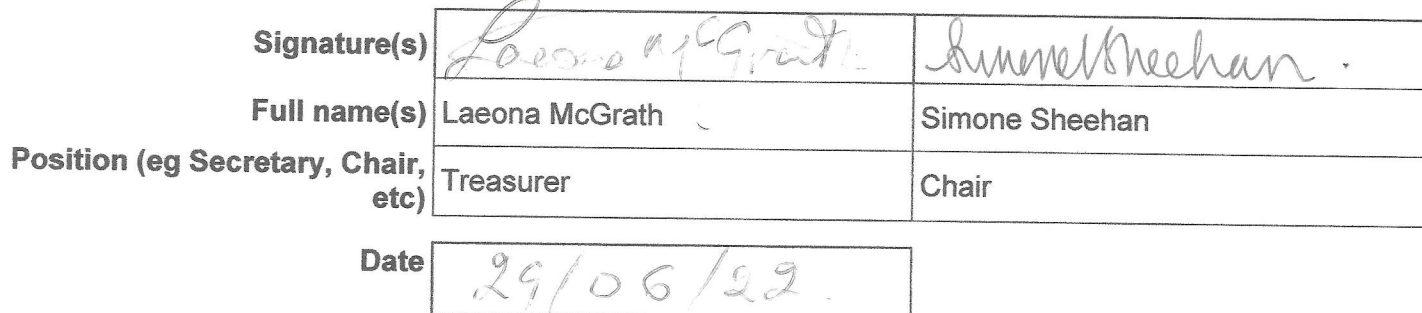 Signature(s) Laeona McGrath Simone Sheehan.
Full name(s) Laeona McGrath Simone Sheehan
Position (eg Secretary, Chair,
etc) Treasurer Chair
Date 29/06/22.